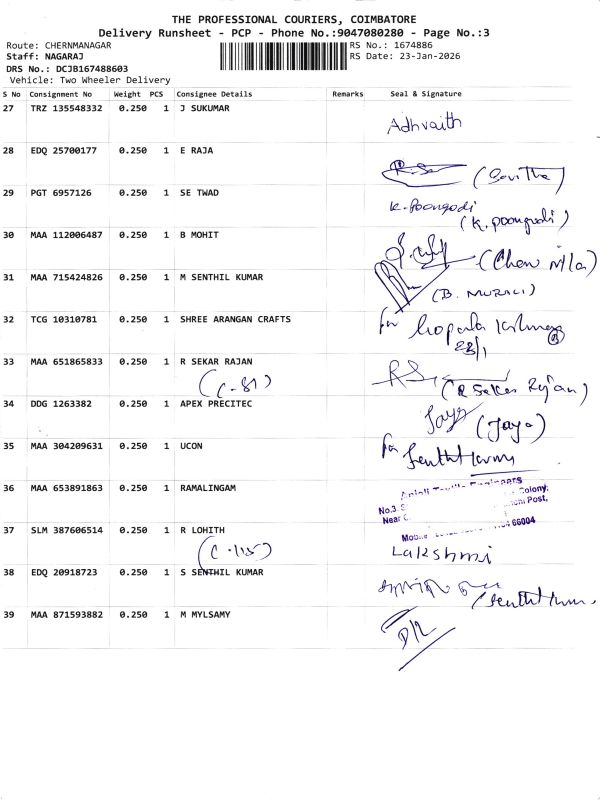 THE PROFESSIONAL COURIERS, COIMBATORE
Delivery Runsheet - PCP - Phone No.:9047080280 - Page No.:3
Route: CHERNMANAGAR
RS No.: 1674886
Staff: NAGARAJ
RS Date: 23-Jan-2026
DRS No.: DCJB167488603
Vehicle: Two Wheeler Delivery
S No Consignment No Weight PCS Consignee Details Remarks Seal & Signature
27 TRZ 135548332 0.250 1 J SUKUMAR
Adhvaith
28 EDQ 25700177 0.250 1 E RAJA
(Savitha)
29 PGT 6957126 0.250 1 SE TWAD
K. Poongodi
(K. poongodi)
30 MAA 112006487 0.250 1 B MOHIT
31 MAA 715424826 0.250 1 M SENTHIL KUMAR
(B. MURALI)
32 TCG 10310781 0.250 1 SHREE ARANGAN CRAFTS
for
23/1
33 MAA 651865833 0.250 1 R SEKAR RAJAN
(C-81)
(R Sekar Rajan)
34 DDG 1263382 0.250 1 APEX PRECITEC
Jaya (Jaya)
35 MAA 304209631 0.250 1 UCON
for
36 MAA 653891863 0.250 1 RAMALINGAM
Engineers
No.3
Colony,
Near
Post,
Mobile
66004
37 SLM 387606514 0.250 1 R LOHITH
(C-115)
Lakshmi
38 EDQ 20918723 0.250 1 S SENTHIL KUMAR
39 MAA 871593882 0.250 1 M MYLSAMY